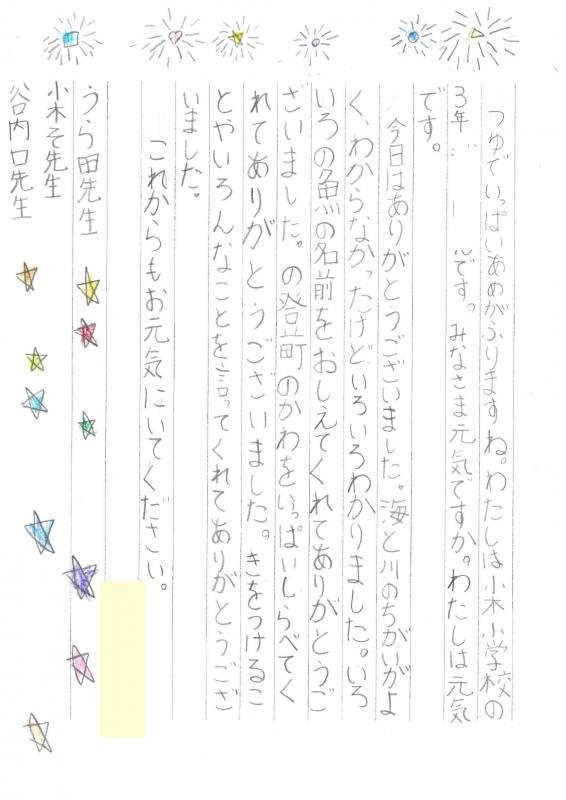 つゆでいっぱいあめがふりますね。わたしは小木小学校の
3年 です。みなさま元気ですか。わたしは元気
です。
今日はありがとうございました。海と川のちがいがよ
く、わからなかったけどいろいろわかりました。いろ
いろの魚の名前をおしえてくれてありがとうご
ざいました。の登町のかわをいっぱいしらべてく
れてありがとうございました。きをつけるこ
とやいろんなことを言ってくれてありがとうござ
いました。
これからもお元気にいてください。
うら田先生
小木そ先生
谷内口先生